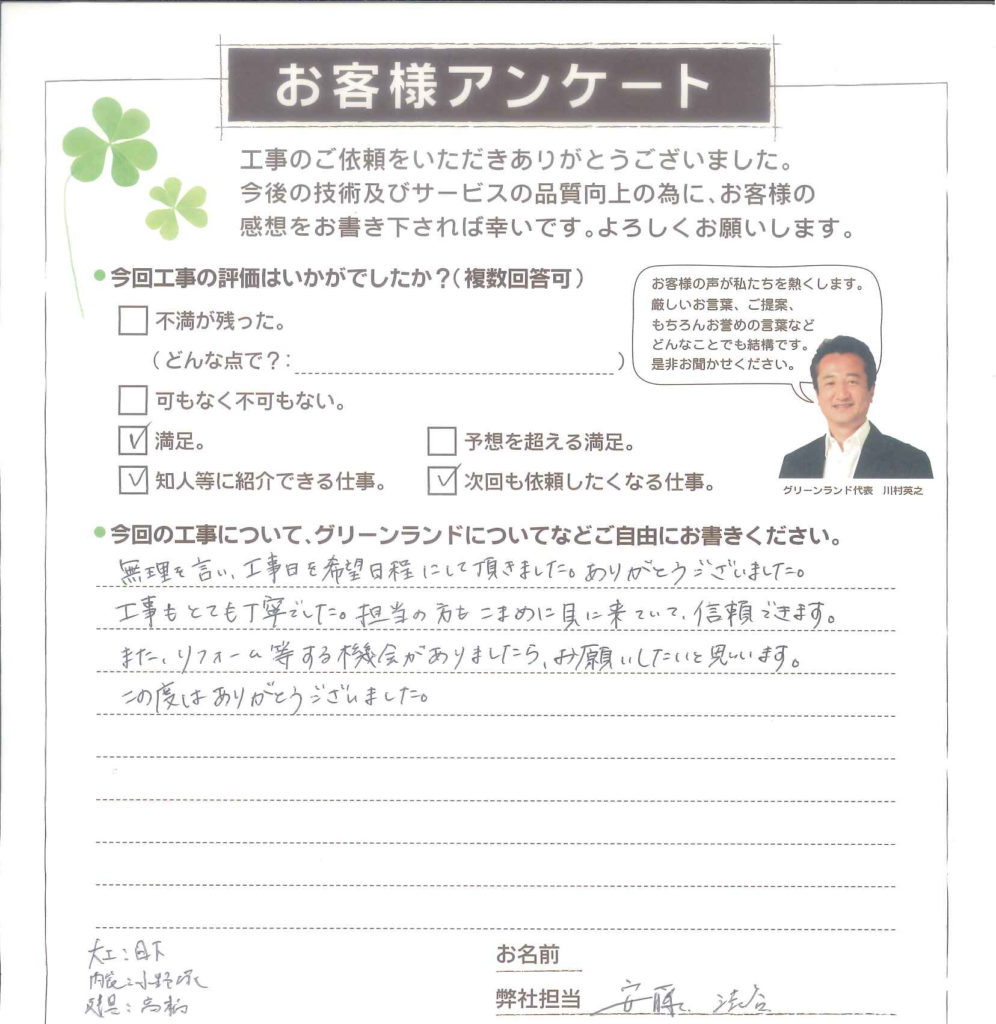 お客様アンケート
工事のご依頼をいただきありがとうございました。
今後の技術及びサービスの品質向上の為に、お客様の
感想をお書き下されば幸いです。よろしくお願いします。
●今回工事の評価はいかがでしたか？（複数回答可）
不満が残った。
（どんな点で？：）
可もなく不可もない。
満足。
予想を超える満足。
知人等に紹介できる仕事。
次回も依頼したくなる仕事。
お客様の声が私たちを熱くします。
厳しいお言葉、ご提案、
もちろんお誉めの言葉など
どんなことでも結構です。
是非お聞かせください。
グリーンランド代表 川村英之
●今回の工事について、グリーンランドについてなどご自由にお書きください。
無理を言い、工事日を希望日程にして頂きました。ありがとうございました。
工事もとても丁寧でした。担当の方もこまめに見に来ていて、信頼できます。
また、リフォーム等する機会がありましたら、お願いしたいと思います。
この度はありがとうございました。
大工：日下
内装：小野塚
建具：高橋
お名前
弊社担当 安藤